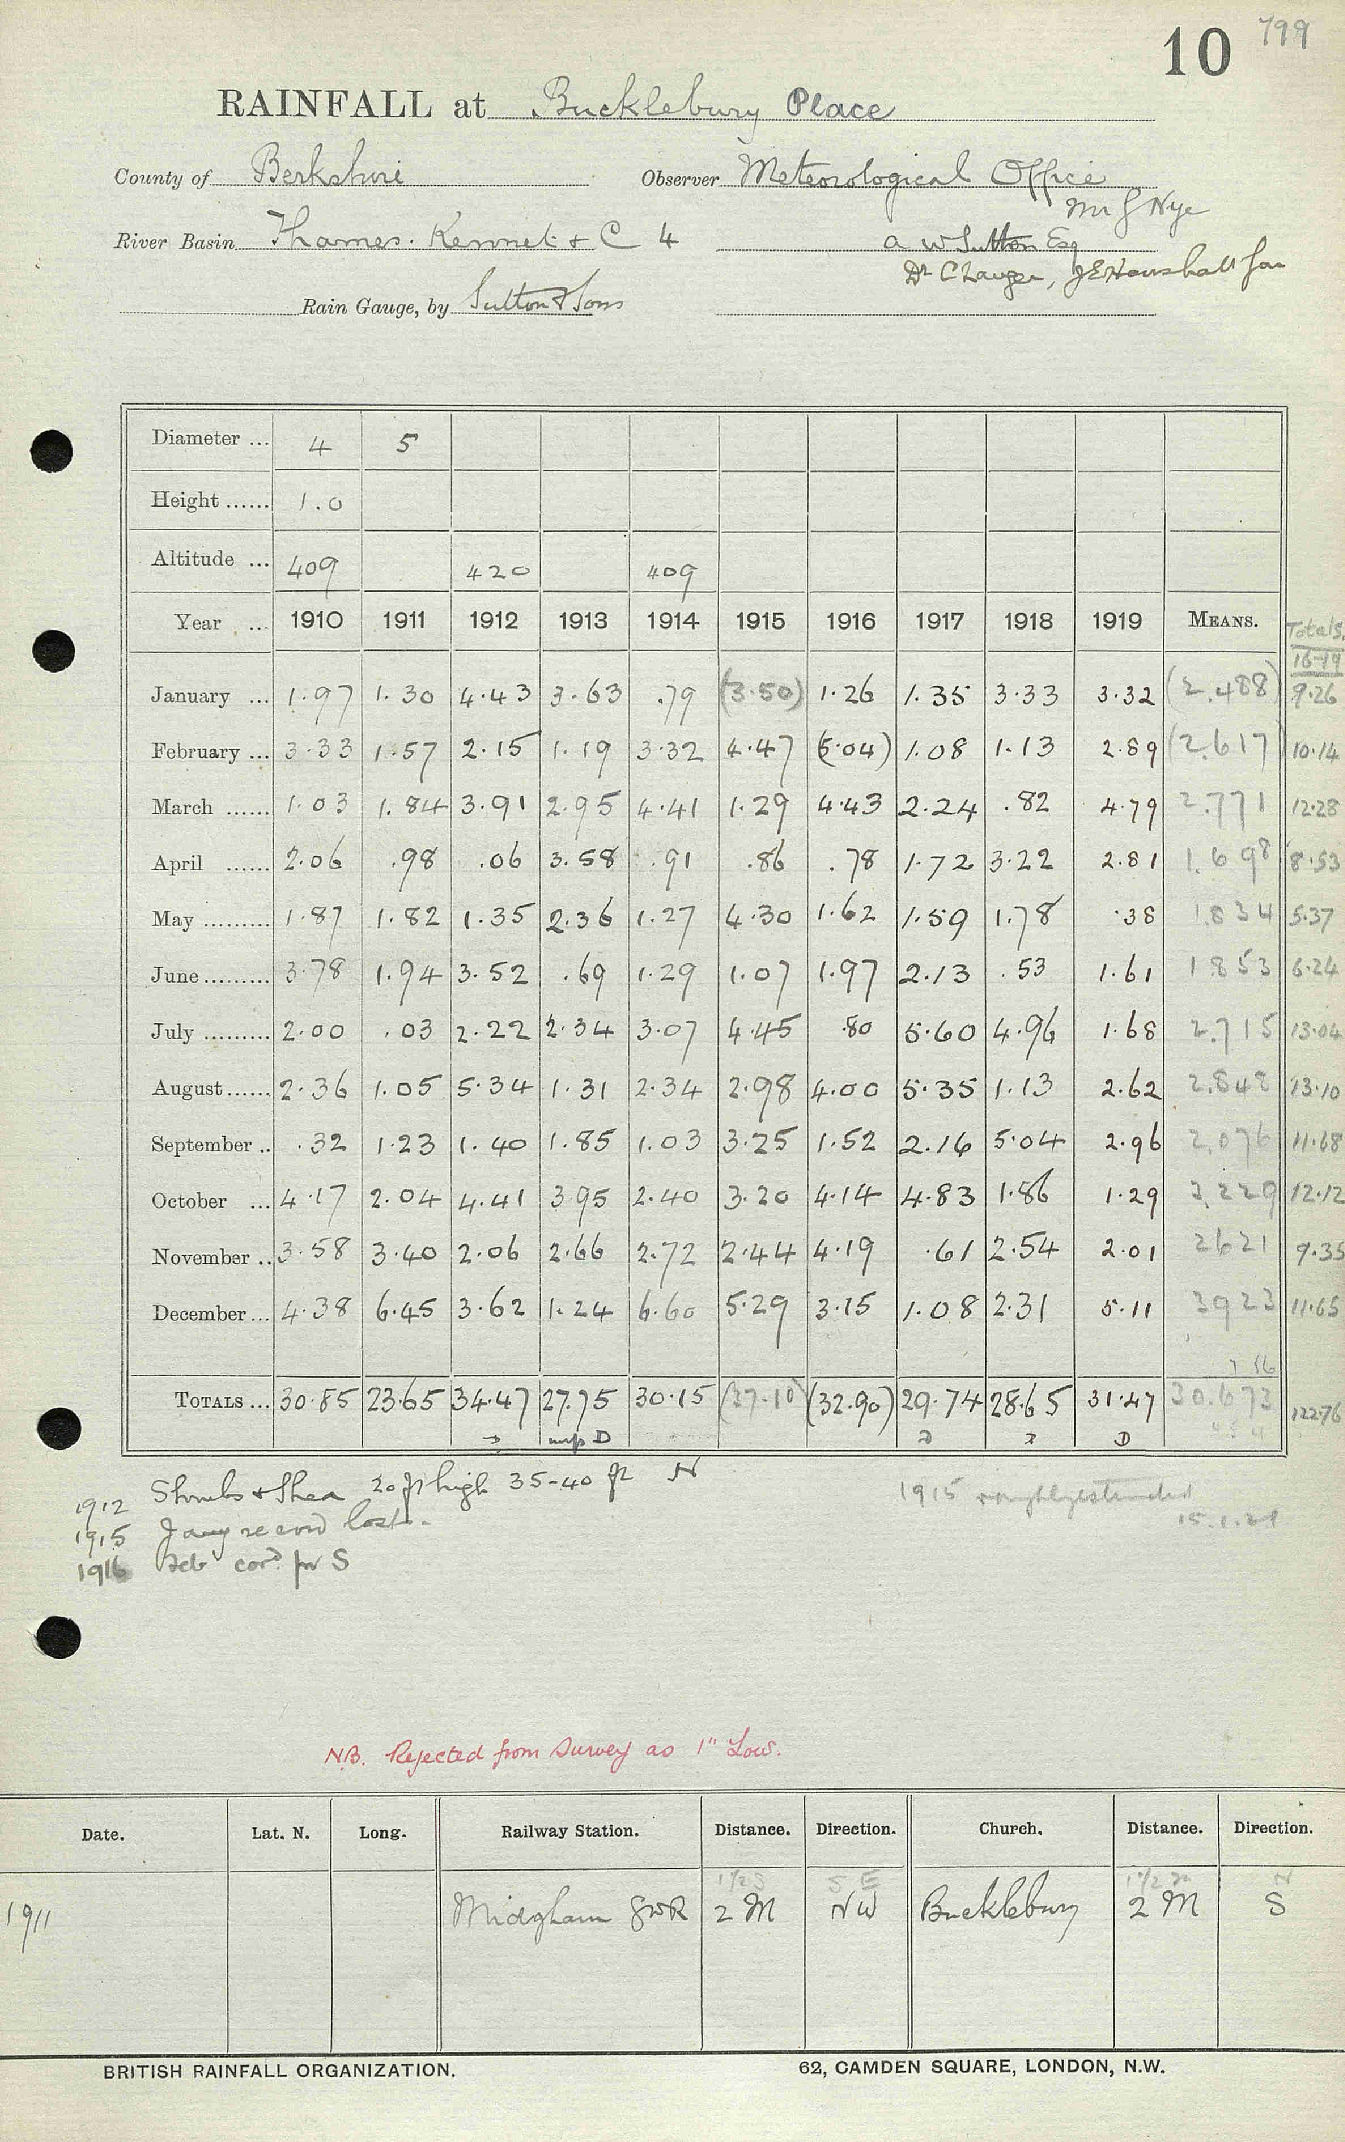 10 799
RAINFALL at Bucklebury Place
County of Berkshire Observer Meteorological Office
Mr G Nye
River Basin Thames. Kennet & C 4 A W Sutton Esq
Dr C
Rain Gauge, by Sutton & Sons
Diameter ... 4 5
Height ...... 1.0
Altitude ... 409 420 409
Year ... 1910 1911 1912 1913 1914 1915 1916 1917 1918 1919 MEANS. Totals. 16-19
January ... 1.97 1.30 4.43 3.63 .79 (3.50) 1.26 1.35 3.33 3.32 (2.488) 9.26
February ... 3.33 1.57 2.15 1.19 3.32 4.47 (5.04) 1.08 1.13 2.89 (2.617) 10.14
March ...... 1.03 1.84 3.91 2.95 4.41 1.29 4.43 2.24 .82 4.79 2.771 12.28
April ...... 2.06 .98 .06 3.58 .91 .86 .78 1.72 3.22 2.81 1.698 8.53
May ......... 1.87 1.82 1.35 2.36 1.27 4.30 1.62 1.59 1.78 .38 1.834 5.37
June ......... 3.78 1.94 3.52 .69 1.29 1.07 1.97 2.13 .53 1.61 1853 6.24
July ......... 2.00 .03 2.22 2.34 3.07 4.45 .80 5.60 4.96 1.68 2.715 13.04
August ...... 2.36 1.05 5.34 1.31 2.34 2.98 4.00 5.35 1.13 2.62 2.848 13.10
September .. .32 1.23 1.40 1.85 1.03 3.25 1.52 2.16 5.04 2.96 2.076 11.68
October ... 4.17 2.04 4.41 3.95 2.40 3.20 4.14 4.83 1.86 1.29 3.229 12.12
November .. 3.58 3.40 2.06 2.66 2.72 2.44 4.19 .61 2.54 2.01 2621 9.35
December ... 4.38 6.45 3.62 1.24 6.60 5.29 3.15 1.08 2.31 5.11 3923 11.65
TOTALS ... 30.85 23.65 34.47 27.75 30.15 (37.10) (32.90) 29.74 28.65 31.47 30.673 122.76
D D
1912 Shrubs & 20 ft high 35-40 ft N
1915 Jany record lost.
1916 Feb cord. for S
1915 roughly estimated
15.1.21
N.B. Rejected from Survey as 1" Low.
Date. Lat. N. Long. Railway Station. Distance. Direction. Church. Distance. Direction.
1 1/2 S S E 1 1/2 m N
1911 Midgham GWR 2 M NW Bucklebury 2 M S
BRITISH RAINFALL ORGANIZATION. 62, CAMDEN SQUARE, LONDON, N.W.